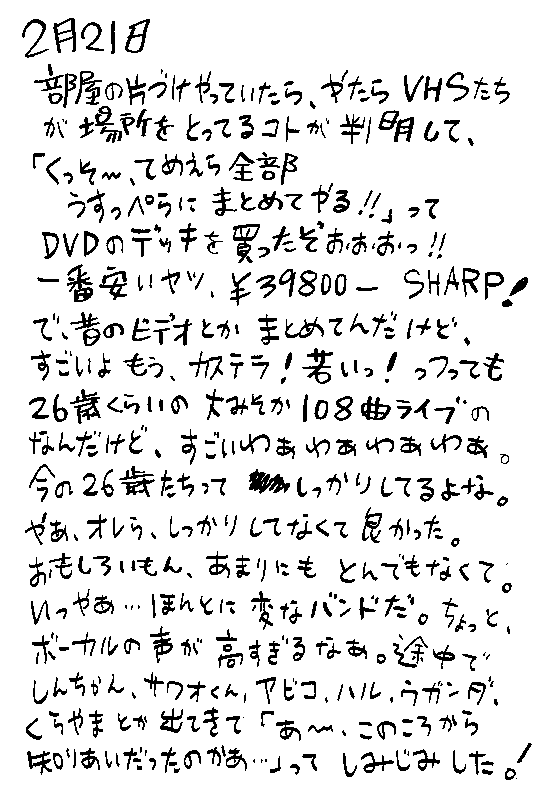 2月21日
部屋の片づけやっていたら、やたら VHSたち
が 場所を とってるコトが 判明して、
「くっそ〜、てめえら 全部
うすっぺらに まとめて やる!!」って
DVDの デッキを 買ったぞおぉおっ!!
一番安いヤツ、¥39800ー SHARP!
で、昔のビデオとか まとめてんだけど、
すごいよ もう、カステラ! 若いっ! っつっても
26歳くらいの 大みそか 108曲ライブの
なんだけど、すごいわぁわぁわぁわぁ。
今の26歳たちって しっかりしてるよな。
やぁ、オレら、しっかり してなくて 良かった。
おもしろいもん、あまりにも とんでもなくて。
いっやぁ…ほんとに 変なバンドだ。ちょっと、
ボーカルの 声が 高すぎるなぁ。途中で
しんちゃん、サワオくん、ヤビコ、ハル、ウガンダ、
くらやまとか 出てきて 「あ〜、このころから
知りあいだったのかぁ…」って しみじみ した!